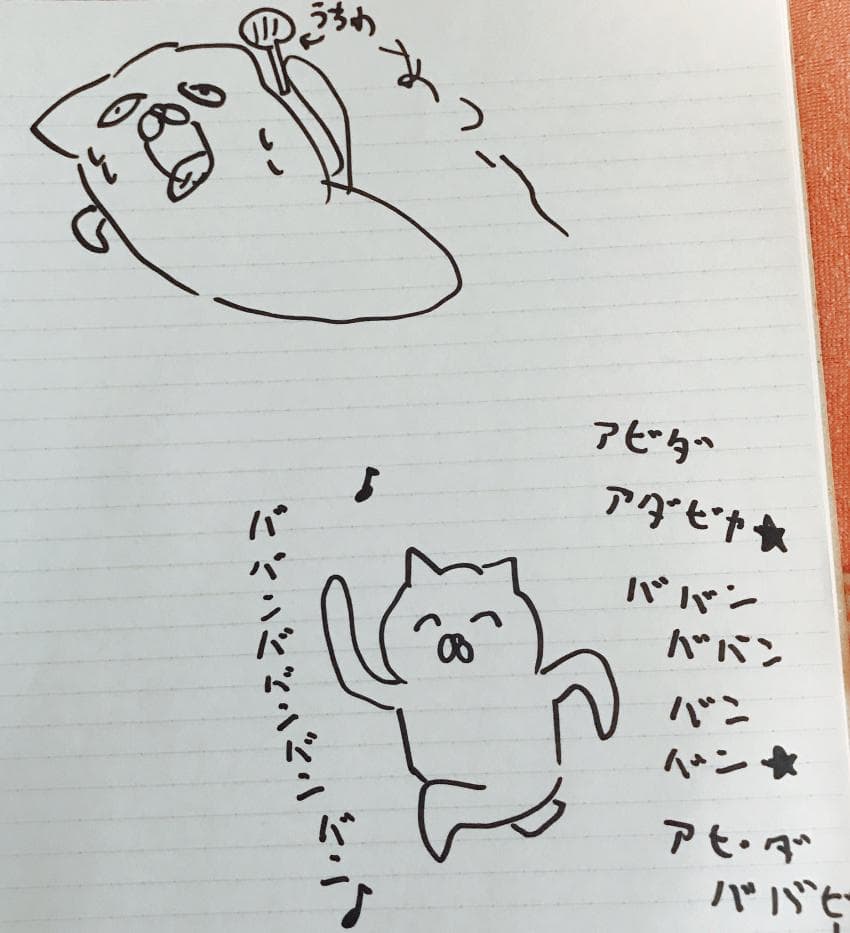 うちわ
あっつ〜
アビダ
アダビヤ★
ババン
ババン
バン
バン★
アビダ
ババビ
♪ババンババンバンバン♪